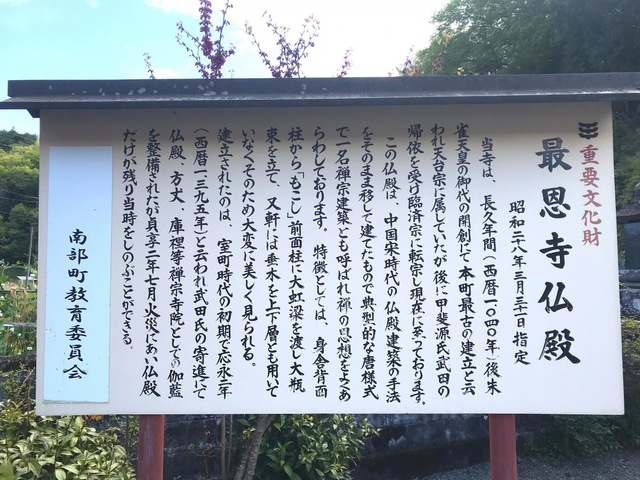 重要文化財
最恩寺仏殿
昭和二十八年三月三十一日指定
当寺は、長久年間(西暦一〇四〇年)後朱
雀天皇の御代の開創にて本町最古の建立と云
われ天台宗に属していたが後に甲斐源氏武田の
帰依を受け臨済宗に転宗し現在に至っております。
この仏殿は、中国宋時代の仏殿建築の手法
をそのまま移して建てたもので典型的な唐様式
で一名禅宗建築とも呼ばれ禅の思想をよくあ
らわしております 特徴としては、身舎背面
柱から「もこし」前面柱に大虹梁を渡し大瓶
束を立て、又軒には垂木を上下層とも用いて
いなくそのため大変に美しく見られる。
建立されたのは、室町時代の初期で応永二年
(西暦一三九五年)と云われ武田氏の寄進にて
仏殿、方丈、庫裡等禅宗寺院としての伽藍
を整備されたが貞享二年七月火災にあい仏殿
だけが残り当時をしのぶことができる。
南部町教育委員会